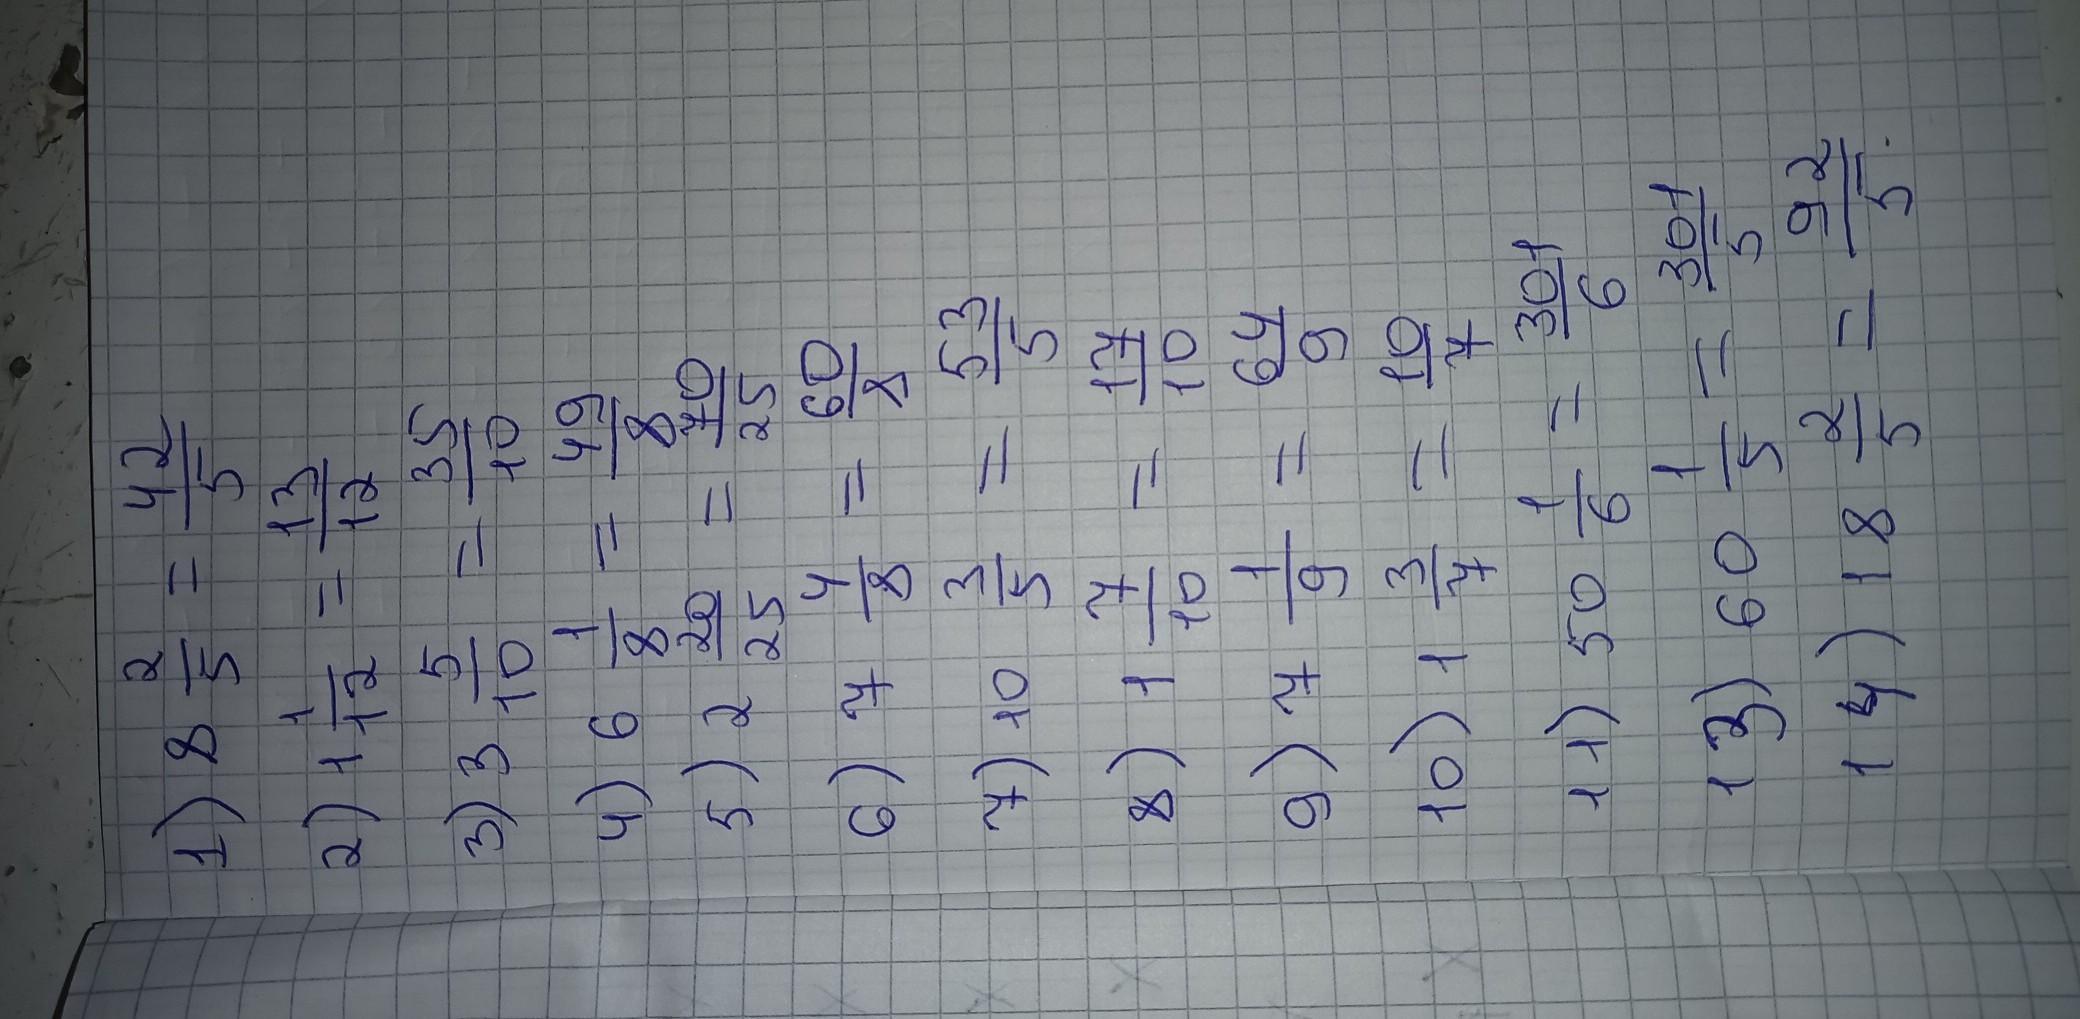 1) 8 2/5 = 42/5
2) 1 1/12 = 13/12
3) 3 5/10 = 35/10
4) 6 1/8 = 49/8
5) 2 20/25 = 70/25
6) 7 4/8 = 60/8
7) 10 3/5 = 53/5
8) 1 7/10 = 17/10
9) 7 1/9 = 64/9
10) 1 3/7 = 10/7
11) 50 1/6 = 301/6
13) 60 1/5 = 301/5
14) 18 2/5 = 92/5.